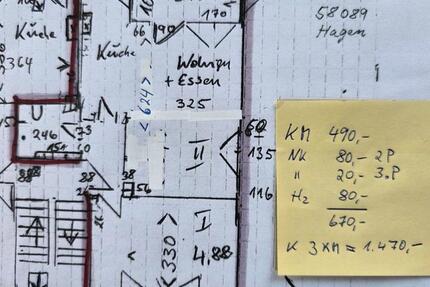 Küche
364
Küche
66
90
170
58089
Hagen
Wohnen
+ Essen
325
< 624 >
U
246
73
II
60
135
116
88
28
38
56
I
< 330 >
4.88
KM 490,-
NK 80,- 2P
" 20,- 3.P
Hz 80,-
670,-
K 3 KM = 1.470,-